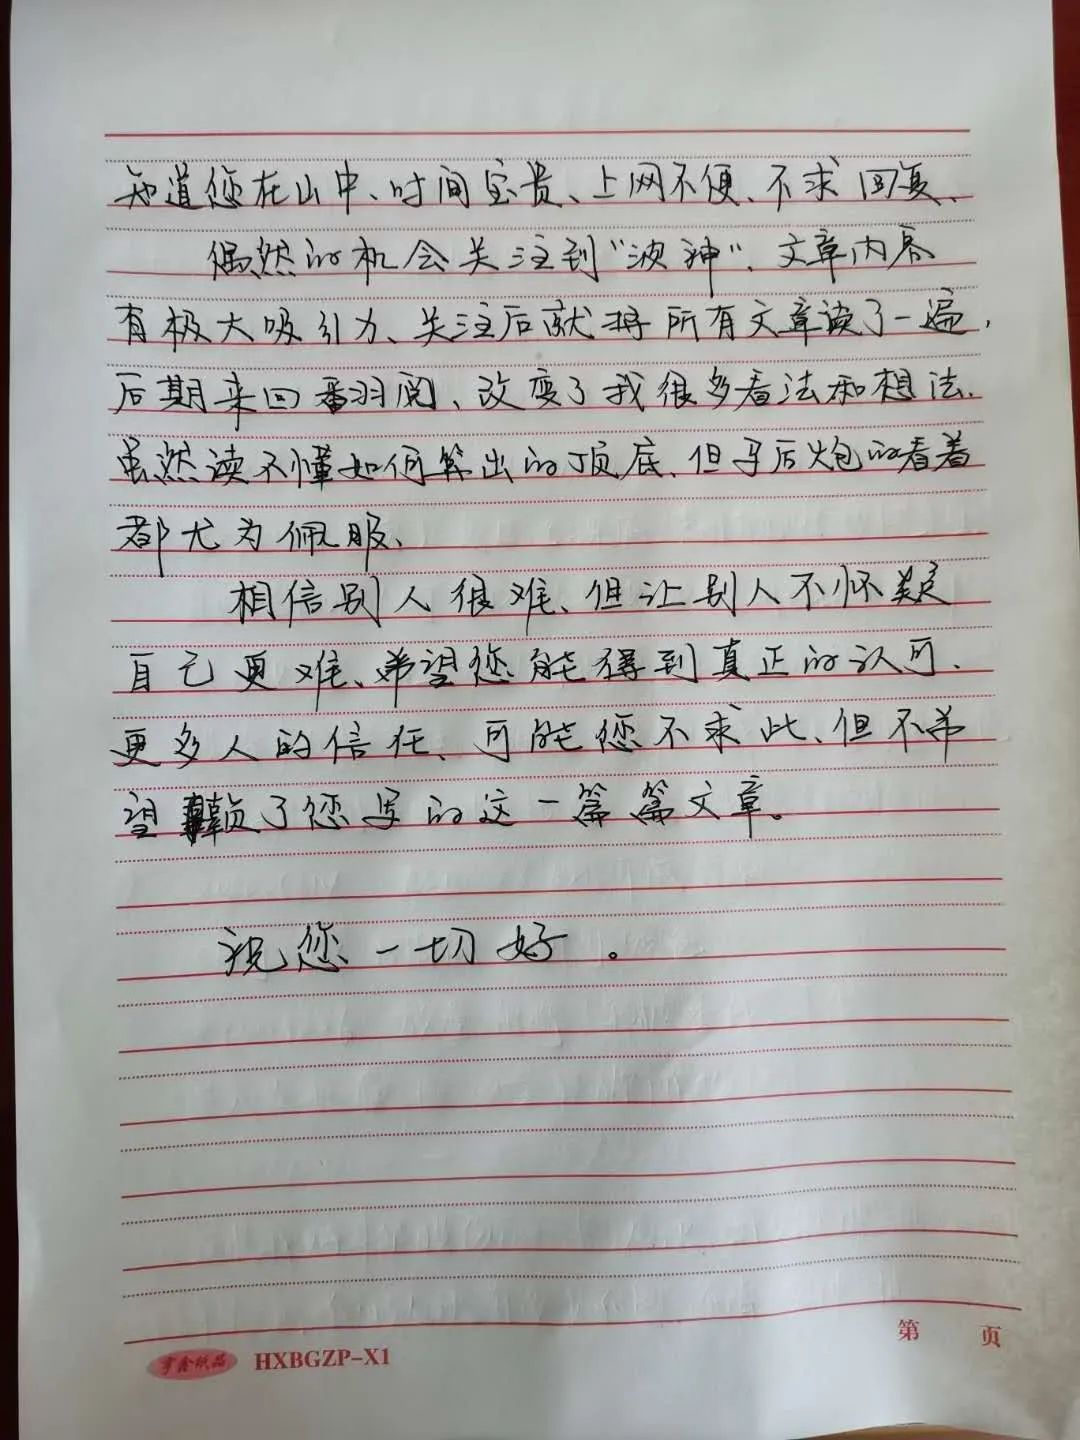 知道您在山中、时间宝贵、上网不便、不求回复、
偶然的机会关注到“波神”、文章内容
有极大吸引力、关注后就将所有文章读了一遍，
后期来回翻阅、改变了我很多看法和想法.
虽然读不懂如何算出的顶底、但马后炮的看着
都尤为佩服、
相信别人很难、但让别人不怀疑
自己更难、希望您能得到真正的认可、
更多人的信任、可能您不求此、但不希
望了您写的这一篇篇文章。
祝您一切好。
第 页
亨鑫纸品 HXBGZP-X1